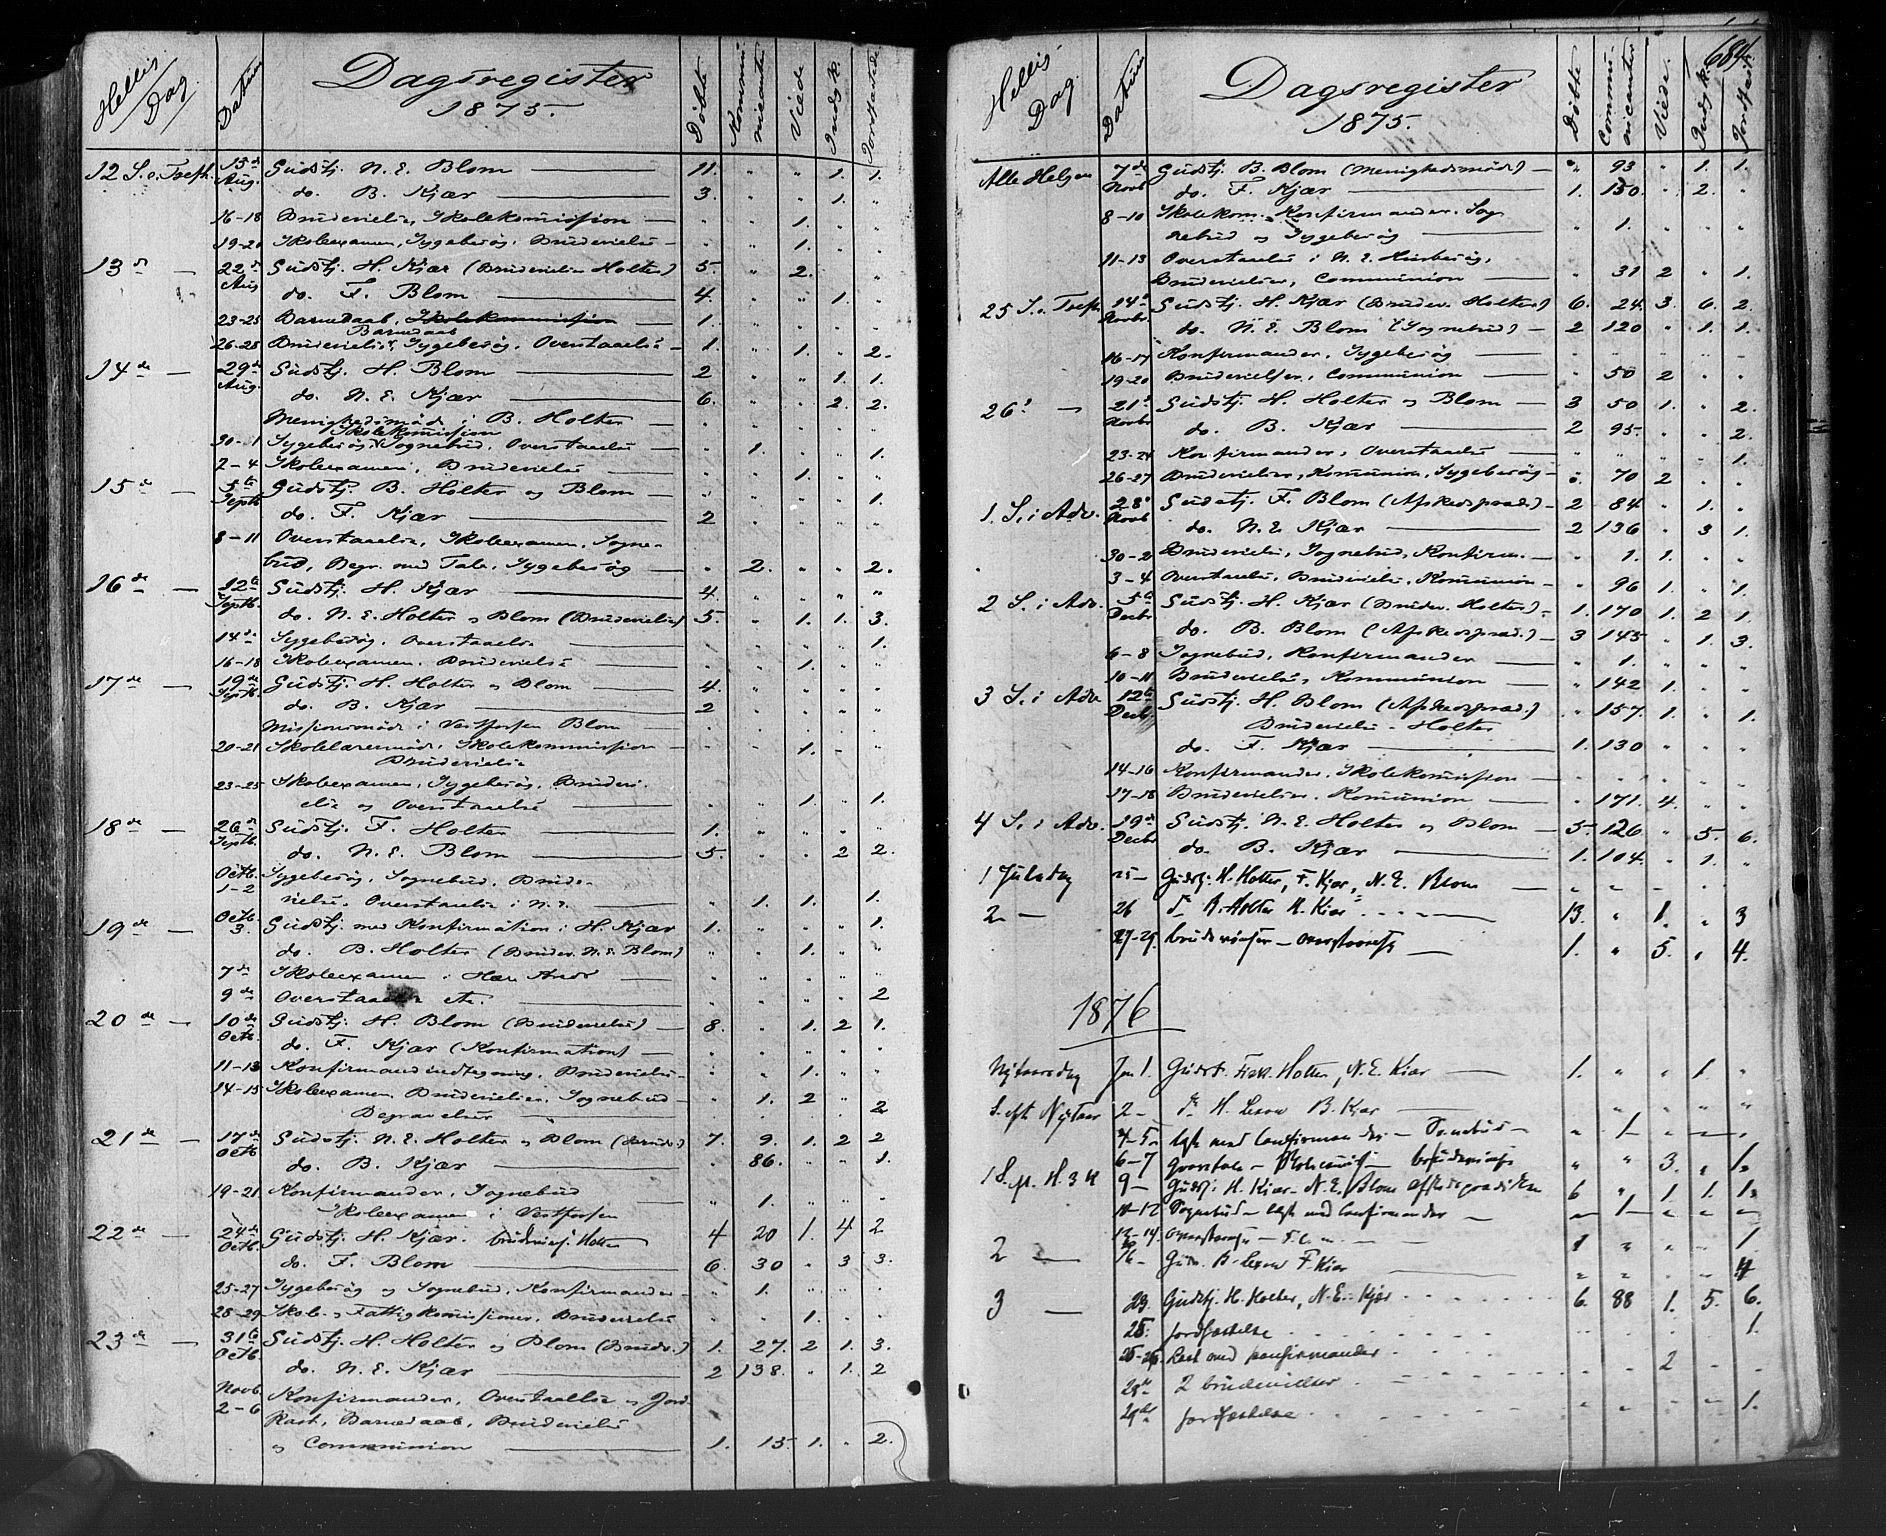 Hellig Dag Datum Dagsregister 1875. Døbte Kommunicanter Viede Indsk. Jordfæstede
12 S. e. Trefh. 15de Aug. Gudstj. N. E. Blom — 11. " " 1. 1.
do. B. Kjær — 3. " " 1. "
16-18 Brudevielse, Skolekomission — " " 1. " "
19-20 Skoleexamen, Sygebesøg, Brudevielse — " " 1. " "
13de — 22de Aug Gudstj. H. Kjær (Brudevielse Holter) 5. " 2. " "
do. F. Blom — 4. " " 1. "
23-25 Barnedaab, Skolekommission — 1. " " " "
Barnedaab
26-28 Brudevielse, Sygebesøg, Overstaaelse — 1. " 1. " 2.
14de — 29de Aug. Gudstj. H. Blom — 2 " " 1. 1.
do. N. E. Kjær — 6. " " 2. 2.
Menighedsmøde i B. Holter —
Skolekommission
30-1 Sygebesøg, Sognebud, Overstaaelse " 1. " " 1.
2-4 Skoleexamen, Brudevielse — " " 1. " "
15de — 5te Septb Gudstj. B. Holter og Blom — " " " " 1.
do. F. Kjær — 2 " " " "
8-11 Overstaaelse, Skoleexamen, Sogne-
bud, Begr. med Tale, Sygebesøg — " 2. " " 2.
16de — 12te Septb. Gudstj. H. Kjær — 4. " " " "
do. N. E. Holter og Blom (Brudevielse) 5. " 1. 1. 3.
14de Sygebesøg, Overstaaelse " " " " 1.
16-18 Skoleexamen, Brudevielse " " 1. " "
17de — 19de Septb. Gudstj. H. Holter og Blom — 4. " " " "
do. B. Kjær — 2 " " " "
Missionsmøde i Vestfossen Blom —
20-21 Skolelærermøde, Skolekommission — " " 1. " "
Brudevielse
23-25 Skoleexamen, Sygebesøg, Brudevi-
else og Overstaaelse — " " 1. " 1.
18de — 26de Septb. Gudstj. F. Holter — 1. " " " "
do. N. E. Blom — 5. " " 2 2.
Octb. 1-2 Sygebesøg, Sognebud, Brude-
vielse, Overstaaelse i N. E. — " 1. 1. " 1.
19de — Octb. 3. Gudstj. med Konfirmation i H. Kjær 1. " " " 1.
do. B. Holter (Brudev. N. E. Blom) " " 1. " "
7de Skoleexamen i —
9de Overstaaelse etc. — " " " " 2
20de — 10de Octb. Gudstj. H. Blom (Brudevielse) — 8. " 1. 2 1.
do. F. Kjær (Konfirmation) —
11-13 Konfirmandindtegning, Brudevielse — " " 1. " "
14-15 Skoleexamen, Brudevielser, Sognebud — " 1. 2 " 2
Begravelser —
21de — 17de Octb Gudstj. N. E. Holter og Blom (Brudev.) 7. 9. 1. 2 2
do. B. Kjær — " 86. " " 1.
19-21 Konfirmander, Sognebud " 1. " " "
Skoleexamen i Vestfossen
22de — 24de Octb. Gudstj. H. Kjær. brudeviels. Holter 4 20 1. 4 2
do. F. Blom — 6. 30 " 3 3.
25-27 Sygebesøg og Sognebud, Konfirmander — " 1. " " "
28-29 Skole- og Fattigkomissioner, Brudevielse " " 1. " "
23de — 31te Octb. Gudstj. H. Holter og Blom (Brudv.) 1. 27. 2 1. 3.
do. N. E. Kjær — 2 138. " 1. 2
Novb. 2-6 Konfirmander, Overstaaelse og Jord-
kast, Barnedaab, Brudevielse
og Communion — 1. 15. 1. " 2.
684.
Hellig Dag Datum Dagsregister 1875. Døbte Communicanter Viede. Indsk. Jordfæst.
Alle Helgen 7de Novb Gudstj. B. Blom (Menighedsmøde) — " 93 " 1. 1.
do. F. Kjær — 1. 150. " 2. "
8-10 Skolekom. Konfirmander. Sog-
nebud og Sygebesøg — " 1. " " "
11-13 Overstaaelse i N. E. Husbesøg,
Brudevielser, Communion — " 31 2 " 1.
25 S. e. Trefh. 14de Novbr. Gudstj. H. Kjær (Brudev. Holter) 6. 24. 3. 6. 2.
do. N. E. Blom (Sognebud) — 2 120 " 1. 1.
16-17 Konfirmander, Sygebesøg —
19-20 Brudevielser, Communion — " 50 2 " "
26de — 21de Novbr Gudstj. H. Holter og Blom — 3 50 1. " 2.
do. B. Kjær — 2 95. " " 2.
23-24 Konfirmander, Overstaaelse — " " " " 1.
26-27 Brudevielser, Komunion, Sygebesøg — " 70 2 " "
1. S. i Adv. 28de Novb Gudstj. F. Blom (Afskedspræd.) — 2 84 " 1. "
do. N. E. Kjær — 2 136 " 3 1.
30-2 Brudevielse, Sognebud, Konfirm. — " 1. 1. " "
3-4 Overstaaelse, Brudevielse, Komunion — " 96 1. " 1.
2 S. i Adv. 5te Decbr Gudstj. H. Kjær (Brudev. Holter) — 1. 170 1. 2 1.
do. B. Blom (Afskedspræd.) — 3 145 " 1. 3.
6-8 Sognebud, Konfirmander — " 1. " " "
10-11 Brudevielse, Kommunion — " 142 1. " "
3 S. i Adv 12te Decbr. Gudstj. H. Blom (Afskedspræd.) " 157. 1. " 1.
Brudevielse - Holter
do. F. Kjær — 1. 130 " " "
14-16 Konfirmander, Skolekomission —
17-18 Brudevielser, Komunion — " 171. 4. " "
4 S. i Adv. 19de Decbr Gudstj. N. E. Holter og Blom — 5. 126 " 5. 6.
do. B. Kjær — 1. 104. " 1. "
1 Juledag 25 — Gudstj: H. Holter, F. Kjær, N. E. Blom —
2 — 26 do B. Holter H. Kiær — 13. " 1. " 3
27-29. brudevielser — overstaaelse — 1. " 5. " 4.
1876
Nytaarsdag Jan 1. Gudst. Holter, N. E. Kiær — 1. " " 1. "
S. eft. Nytaar 2 — do H. Lexow B. Kjær —
4-5 læst med Confirmander — Sognebud — " 1 — " — "
6-7 — brudevielse " " 3. " 1.
1 S. e. H. 3 K 9 — Gudstj: H. Kiær — N. E. Blom afskedsprædiken 6 " 1. 1. 1.
11-12 Sognebud — læst med Confirmander — " 1 — " "
13-14. overstaaelse — 1 " " " 1.
2 — 16 — Gud. B. Lexow F. Kiær — " " " " 4
3 — 23. Gudstj. H. Holter, N. E. Kjær 6. 88 1. 5. 6.
25. jordfæstelse 1.
25-26. læst med konfirmander
28de 2 brudevielser 2
29de jordfæstelse 1.